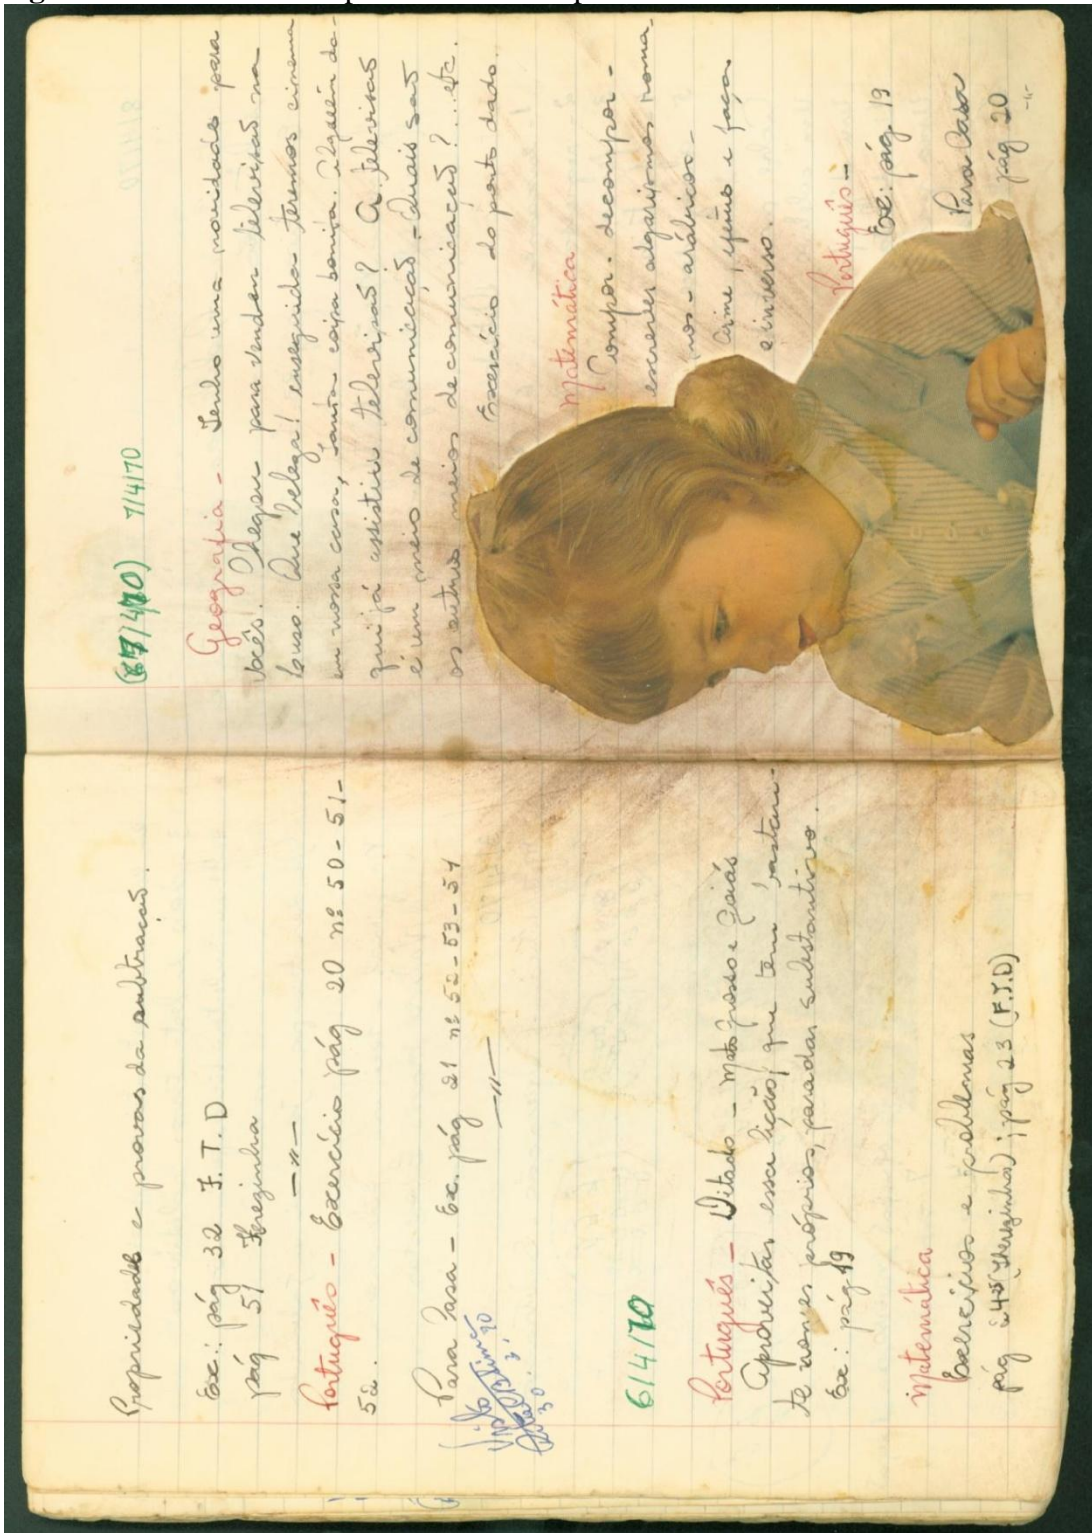 Propriedades e provas da subtração.
Ex.: pág 32 F. T. D
pág 51 Therezinha
—"—
Português - Exercício pág 20 nº 50-51-
52.
Para Casa - Ex. pág 21 nº 52-53-54
—"—
6/4/70
Português - Ditado - Mato Grosso e Goiás
Aproveitar essa lição, que tem bastan-
te nomes próprios, para dar substantivo.
Ex: pág 19
Matemática
Exercícios e problemas
pág 45 (Therezinha); pág 23 (F.T.D)
7/4/70
Geografia - Tenho uma novidade para
vocês! Chegou para vender televisão na
buso. Que beleza! enseguida teremos cinema
em nossa casa, numa caixa bonita. Alguém da-
qui já assistiu televisão? A televisão
é um meio de comunicação - Quais são
os outros meios de comunicação?...etc.
Exercício do ponto dado.
Matemática
Compor - decompor -
escrever algarismos roma-
nos - arábicos -
Arme, efetue e faça
o inverso.
Português -
Ex: pág 19
Para Casa
pág 20
-"-